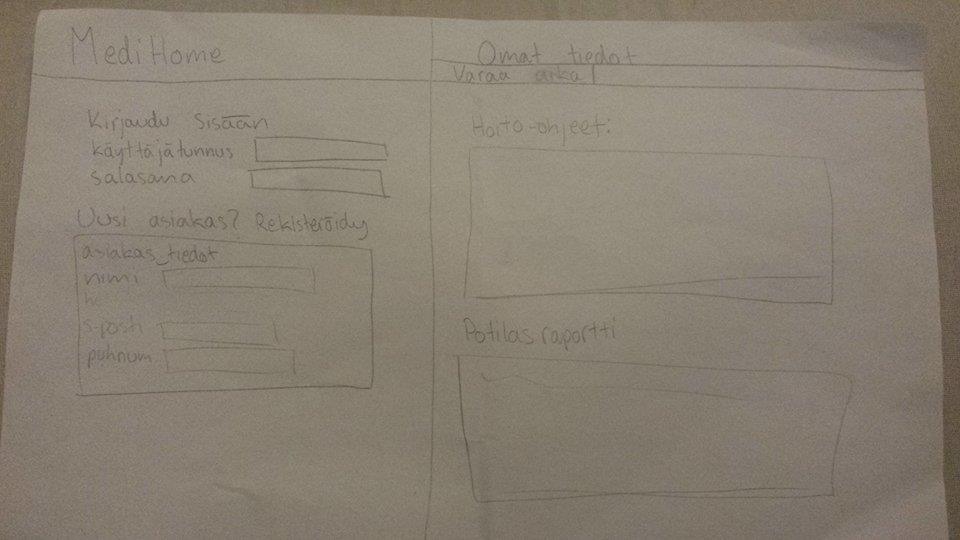 MediHome
Kirjaudu sisään
käyttäjätunnus
salasana
Uusi asiakas? Rekisteröidy
asiakas_tiedot
nimi
s-posti
puhnum.
Omat tiedot
Varaa aika
Hoito-ohjeet:
Potilasraportti